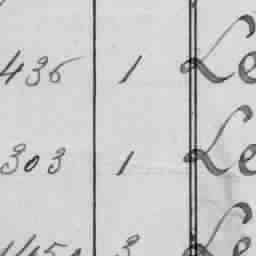 436 1 Le
303 1 Le
3 Le